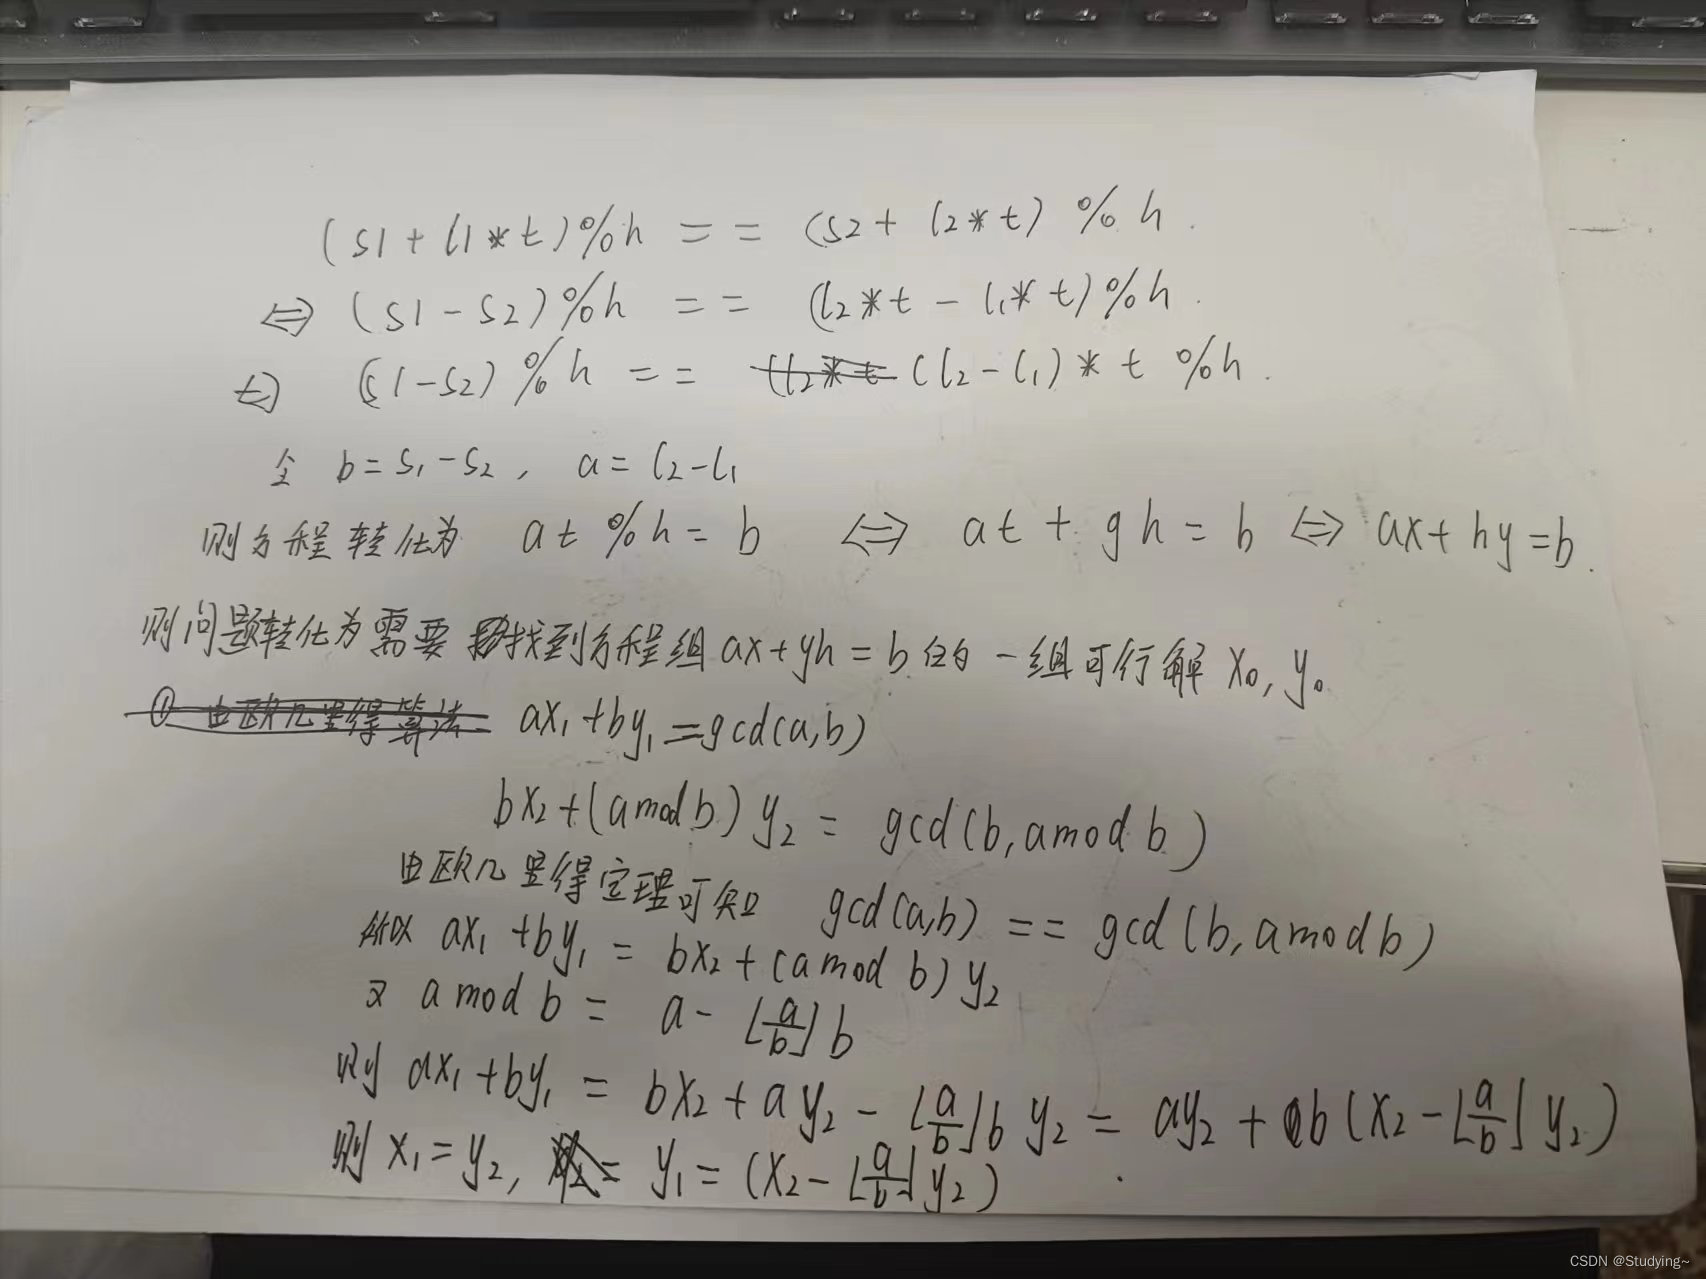 (s1 + l1 * t) % h == (s2 + l2 * t) % h.
⇔ (s1 - s2) % h == (l2 * t - l1 * t) % h.
⇔ (s1 - s2) % h == (l2 - l1) * t % h.
令 b = s1 - s2, a = l2 - l1
则方程转化为 at % h = b ⇔ at + gh = b ⇔ ax + hy = b.
则问题转化为需要找到方程组 ax + yh = b 的一组可行解 x₀, y₀
① 由欧几里得算法 ax₁ + by₁ = gcd(a, b)
bx₂ + (a mod b) y₂ = gcd(b, a mod b)
由欧几里得定理可知 gcd(a, b) == gcd(b, a mod b)
所以 ax₁ + by₁ = bx₂ + (a mod b) y₂
又 a mod b = a - ⌊a/b⌋ b
则 ax₁ + by₁ = bx₂ + ay₂ - ⌊a/b⌋ b y₂ = ay₂ + b (x₂ - ⌊a/b⌋ y₂)
则 x₁ = y₂, y₁ = (x₂ - ⌊a/b⌋ y₂)
CSDN @Studying~